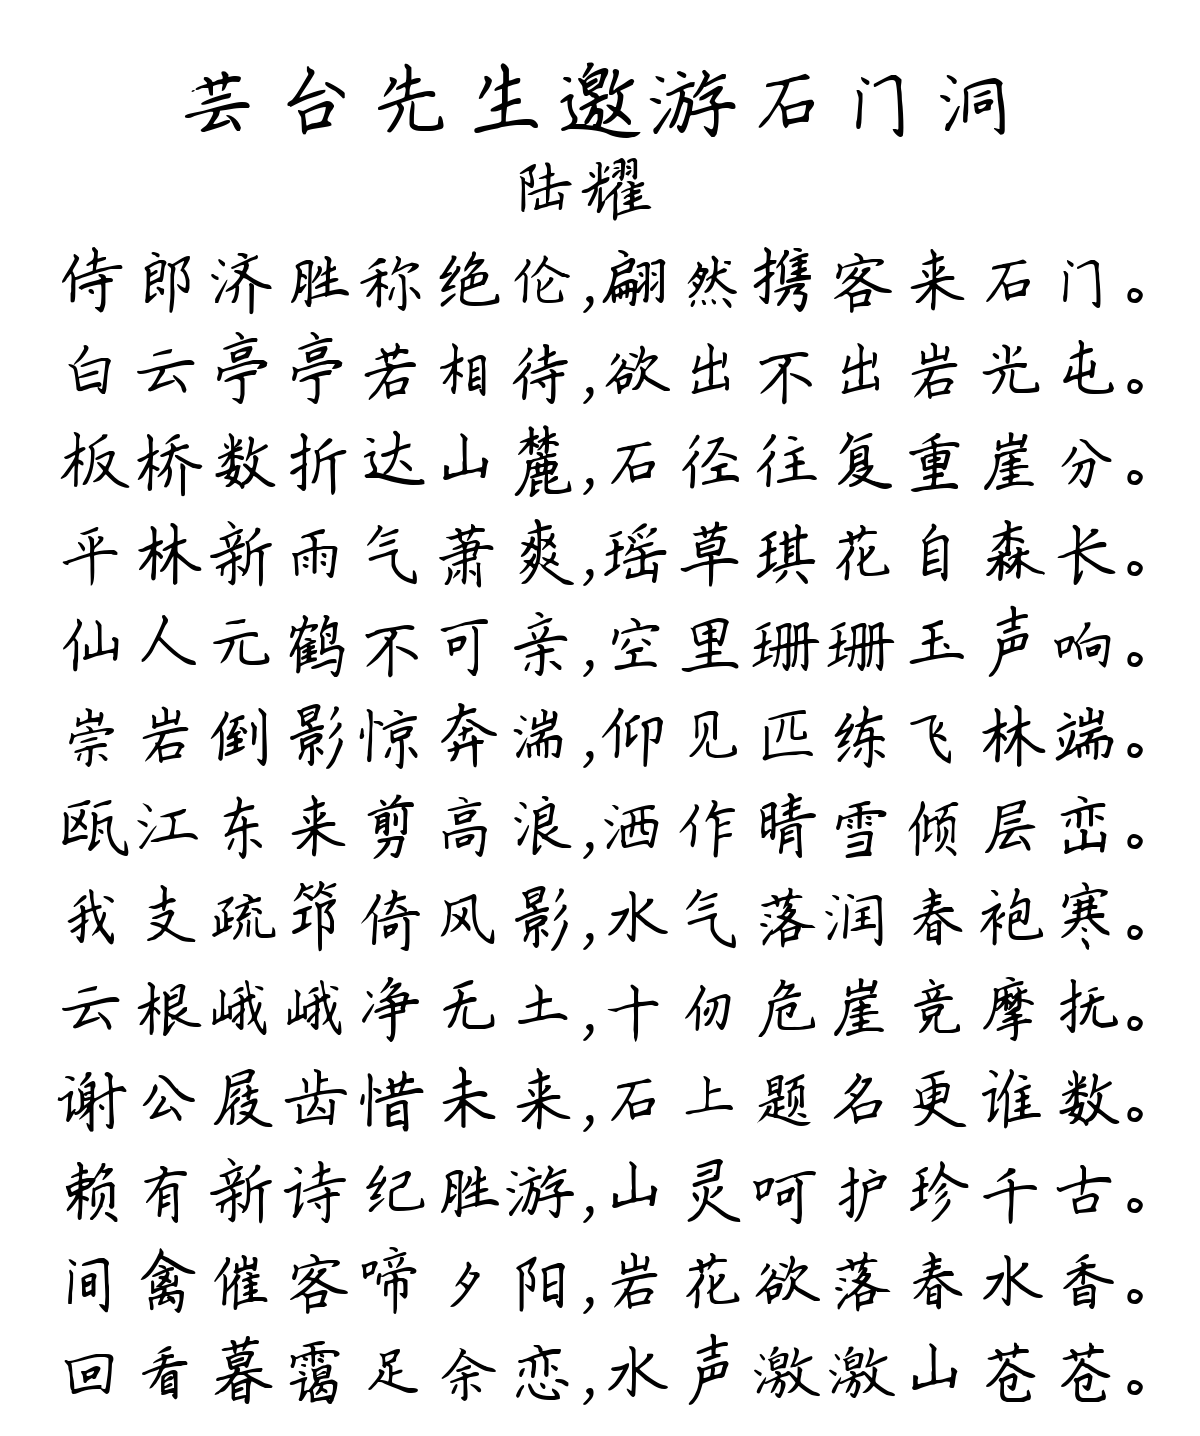 芸台先生邀游石门洞
陆耀
侍郎济胜称绝伦,翩然携客来石门。
白云亭亭若相待,欲出不出岩光屯。
板桥数折达山麓,石径往复重崖分。
平林新雨气萧爽,瑶草琪花自森长。
仙人元鹤不可亲,空里珊珊玉声响。
崇岩倒影惊奔湍,仰见匹练飞林端。
瓯江东来剪高浪,洒作晴雪倾层峦。
我支疏筇倚风影,水气落润春袍寒。
云根峨峨净无土,十仞危崖竞摩抚。
谢公屐齿惜未来,石上题名更谁数。
赖有新诗纪胜游,山灵呵护珍千古。
间禽催客啼夕阳,岩花欲落春水香。
回看暮霭足余恋,水声激激山苍苍。